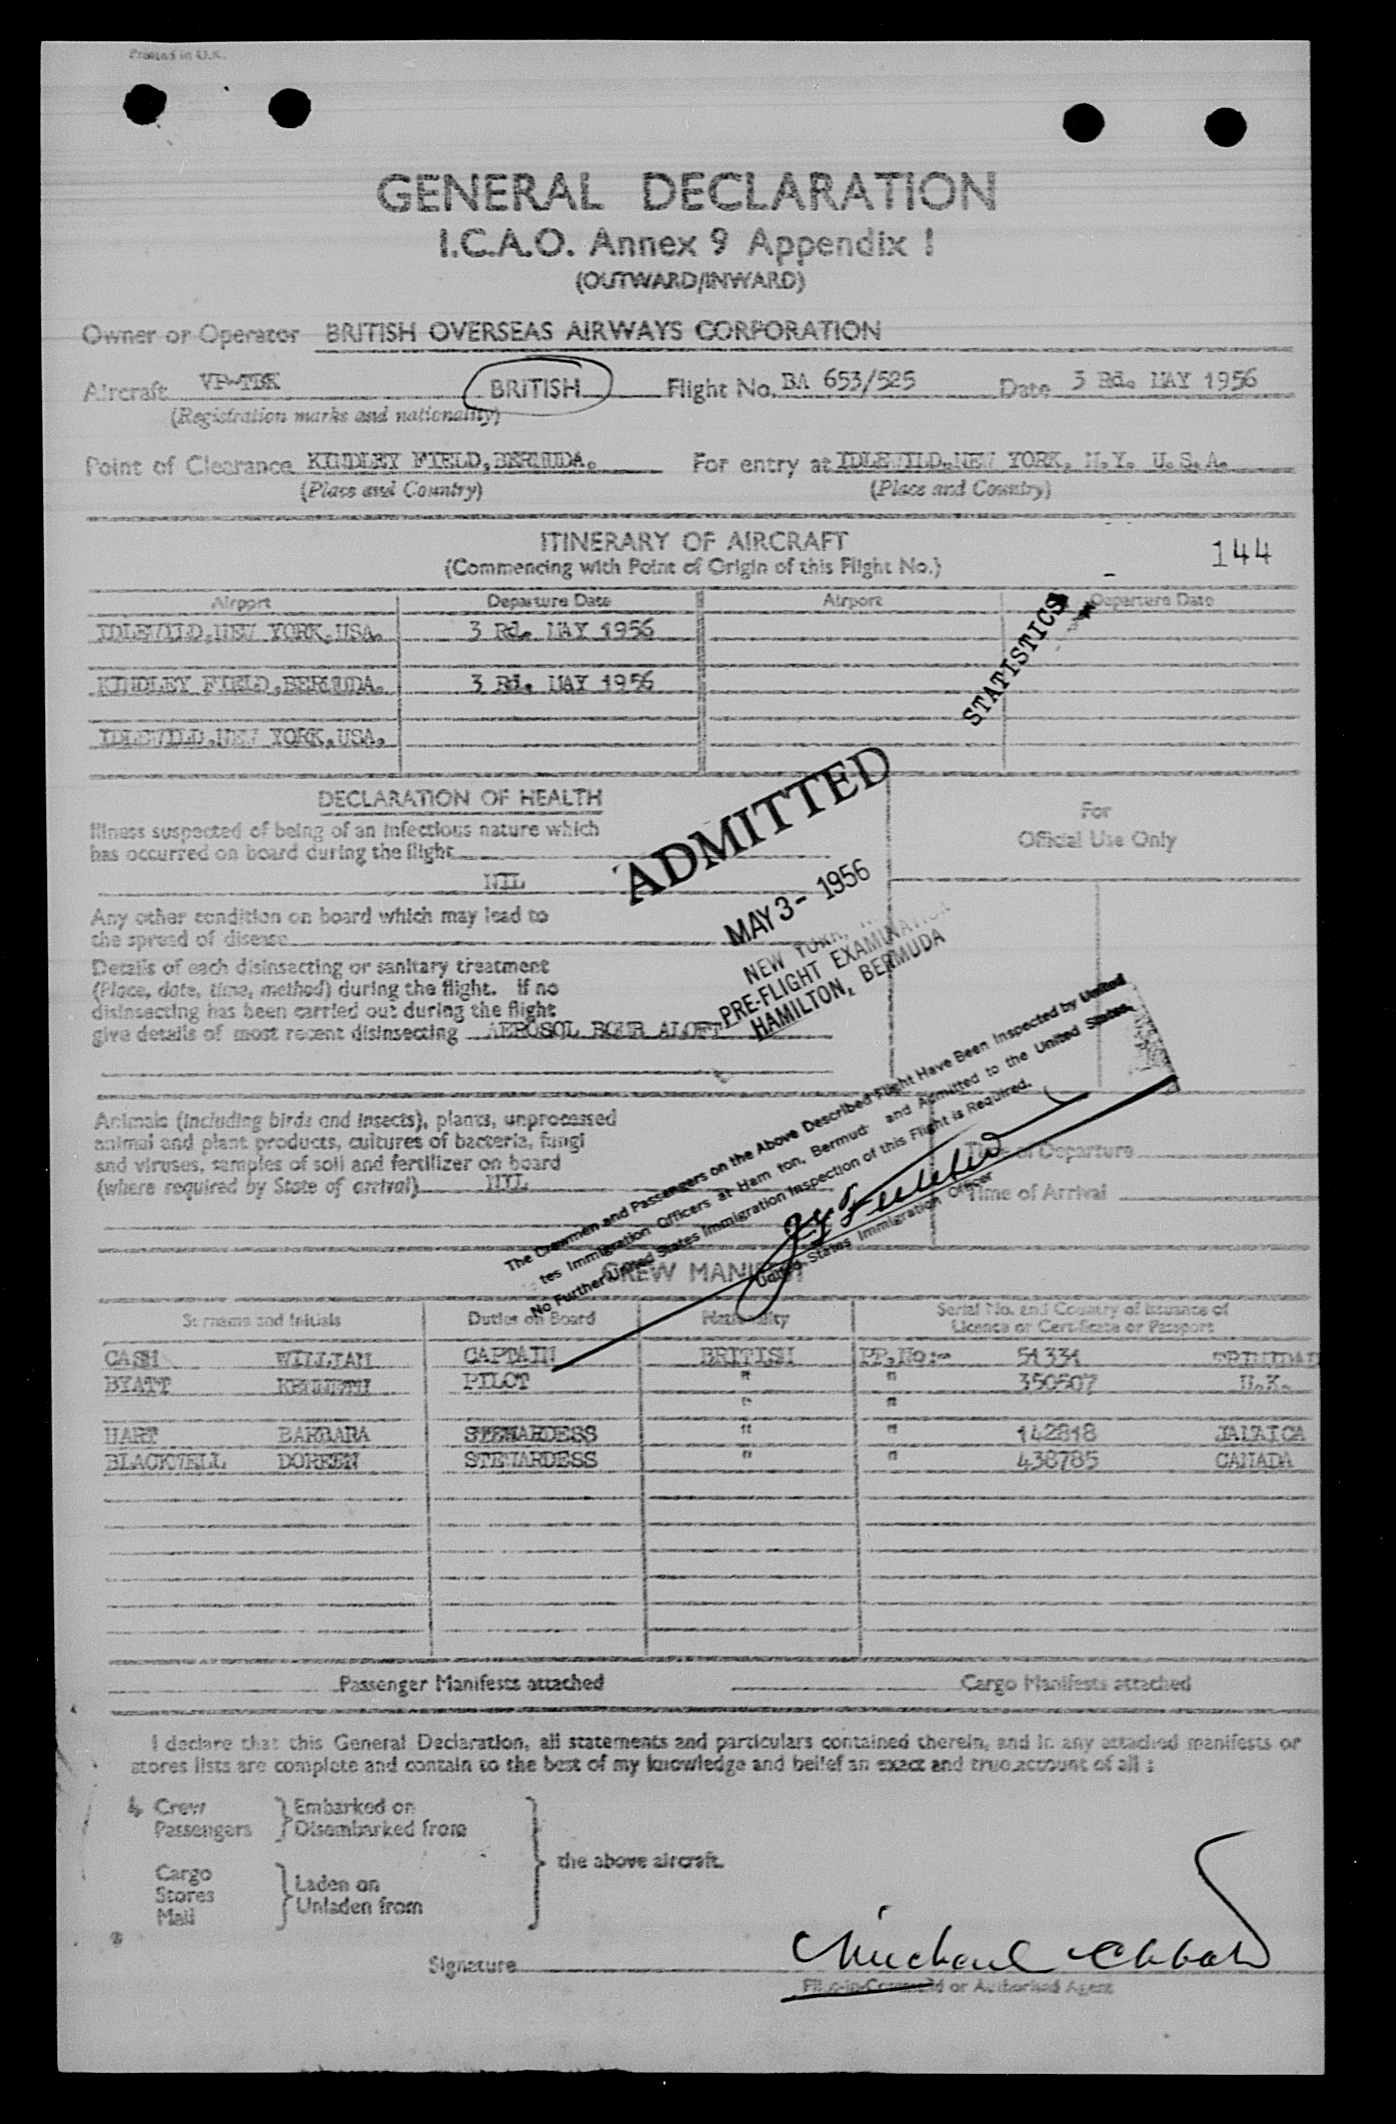 Printed in U.K.
GENERAL DECLARATION
I.C.A.O. Annex 9 Appendix I
(OUTWARD/INWARD)
Owner or Operator BRITISH OVERSEAS AIRWAYS CORPORATION
Aircraft VP-TBK BRITISH Flight No. BA 653/525 Date 3 Rd. MAY 1956
(Registration marks and nationality)
Point of Clearance KINDLEY FIELD, BERMUDA. For entry at IDLEWILD, NEW YORK, N.Y. U.S.A.
(Place and Country) (Place and Country)
ITINERARY OF AIRCRAFT
144
(Commencing with Point of Origin of this Flight No.)
Airport Departure Date Airport Departure Date
IDLEWILD, NEW YORK, USA. 3 Rd. MAY 1956
KINDLEY FIELD, BERMUDA. 3 Rd. MAY 1956
IDLEWILD, NEW YORK, USA.
STATISTICS
DECLARATION OF HEALTH
For
Official Use Only
Illness suspected of being of an infectious nature which
has occurred on board during the flight
NIL
Any other condition on board which may lead to
the spread of disease
Details of each disinsecting or sanitary treatment
(Place, date, time, method) during the flight. If no
disinsecting has been carried out during the flight
give details of most recent disinsecting AEROSOL BOMB ALOFT
ADMITTED
MAY 3- 1956
NEW YORK, N.Y.
PRE-FLIGHT EXAMINATION
HAMILTON, BERMUDA
Animals (including birds and insects), plants, unprocessed
animal and plant products, cultures of bacteria, fungi
and viruses, samples of soil and fertilizer on board
(where required by State of arrival) NIL
Time of Departure
Time of Arrival
The Crewmen and Passengers on the Above Described Flight Have Been Inspected by United
tes Immigration Officers at Ham ton, Bermud and Admitted to the United States.
No Further United States Immigration Inspection of this Flight is Required.
United States Immigration Officer
CREW MANIFEST
Surname and Initials Duties on Board Nationality Serial No. and Country of Issuance of
Licence or Certificate or Passport
CASH WILLIAM CAPTAIN BRITISH PP.No:- 51331 TRINIDAD
BYATT KENNETH PILOT " " 350507 U.K.
" "
HART BARBARA STEWARDESS " " 142818 JAMAICA
BLACKWELL DOREEN STEWARDESS " " 438785 CANADA
Passenger Manifests attached Cargo Manifests attached
I declare that this General Declaration, all statements and particulars contained therein, and in any attached manifests or
stores lists are complete and contain to the best of my knowledge and belief an exact and true account of all :
4 Crew Embarked on
Passengers Disembarked from
the above aircraft.
Cargo Laden on
Stores
Mail Unladen from
Signature Michael
Pilot-in-Command or Authorised Agent